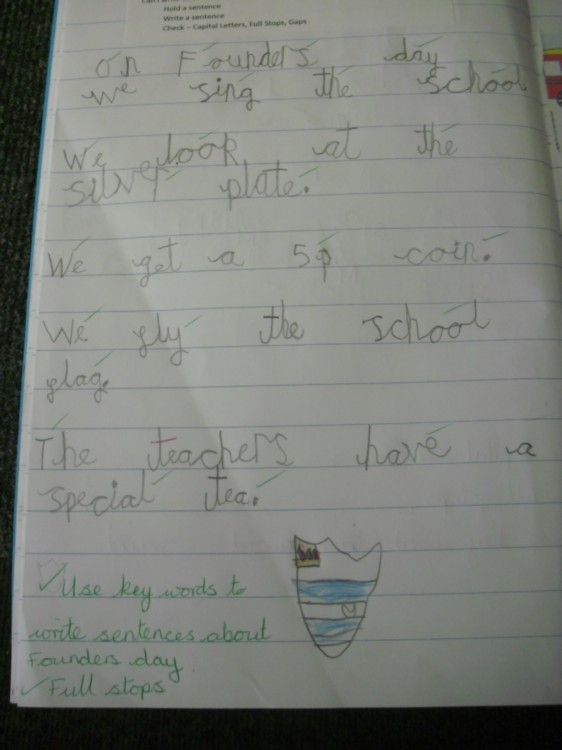 Hold a sentence
Write a sentence
Check – Capital Letters, Full Stops, Gaps
on Founders day
we sing the school
We look at the
silver plate.
We get a 5p coin.
We fly the school
flag.
The teachers have a
special tea.
✓Use key words to
write sentences about
Founders day
✓Full stops